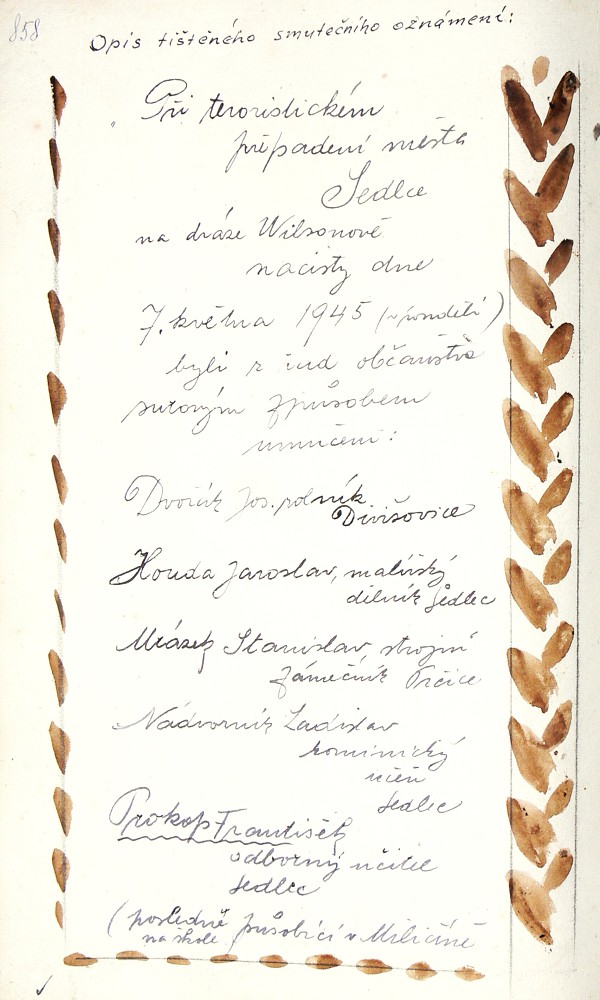 858
Opis tištěného smutečního oznámení:
Při teroristickém
přepadení města
Sedlce
na dráze Wilsonově
nacisty dne
7. května 1945 (v pondělí)
byli z řad občanstva
surovým způsobem
umučeni:
Dvořák Jos. rolník
Divišovice
Houda Jaroslav, malířský
dělník Sedlec
Mrázek Stanislav, strojní
zámečník Prčice
Nádvorník Ladislav
kominický
učeň
Sedlec
Prokop František
odborný učitel
Sedlec
(posledně působící v Miličíně
na škole